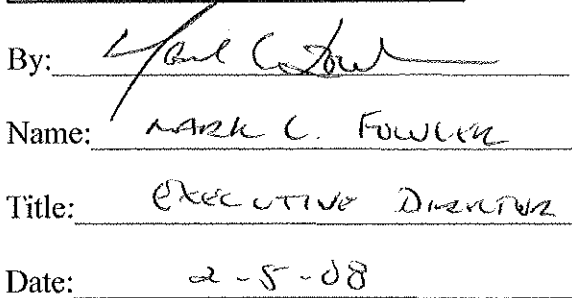 By: Mark C. Fowler
Name: MARK C. FOWLER
Title: EXECUTIVE DIRECTOR
Date: 2-5-08